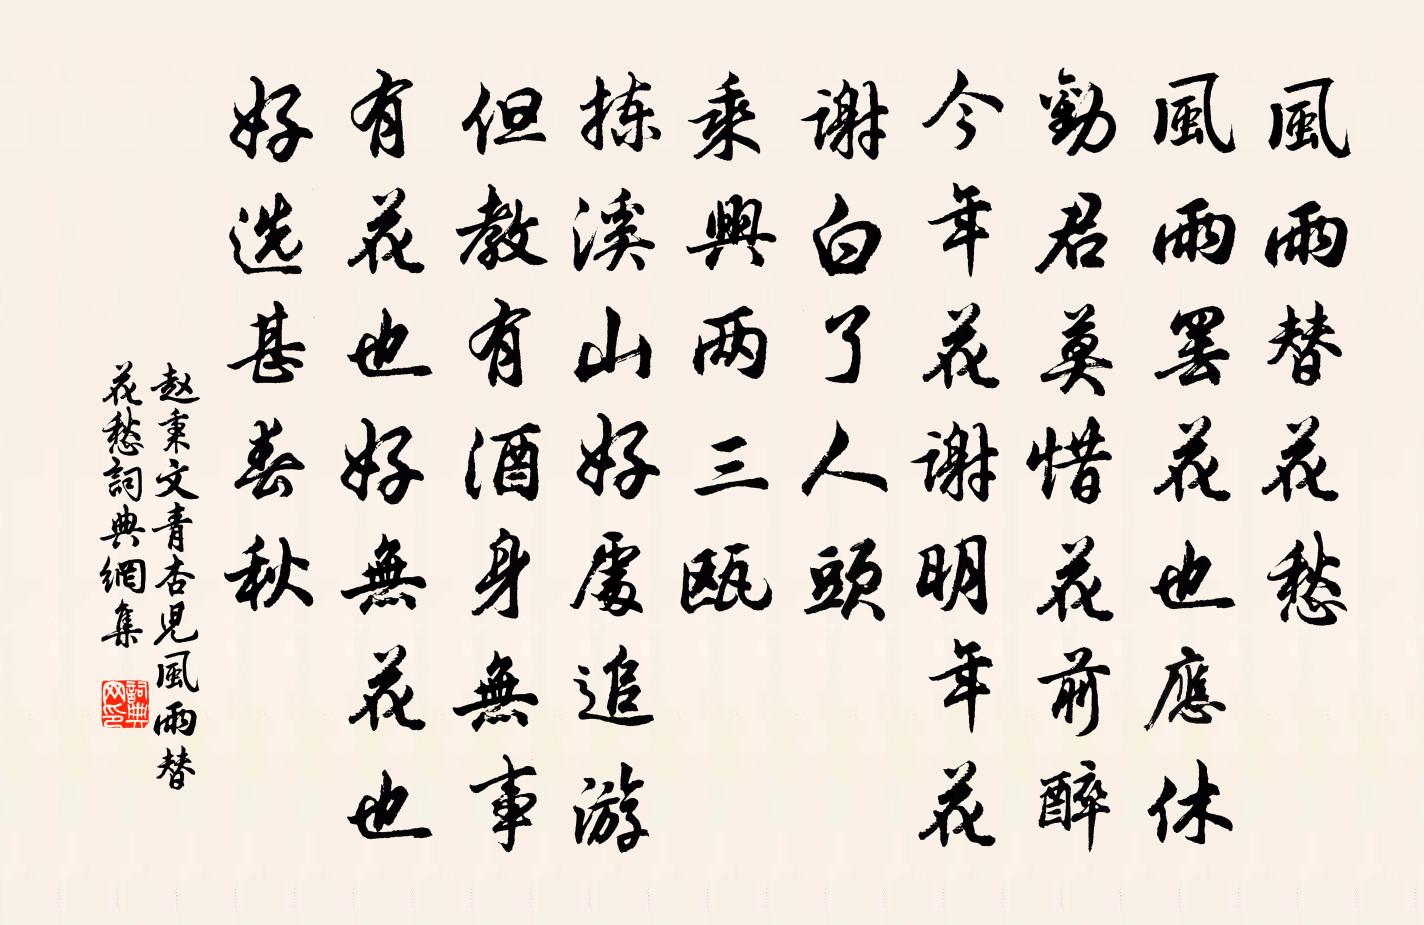 風雨替花愁
風雨罢花也應休
勸君莫惜花前醉
今年花謝明年花
謝白了人頭
乘興两三瓯
拣溪山好處追游
但教有酒身無事
有花也好無花也
好选甚春秋
赵秉文青杏児風雨替
花愁詞典網集
詞典
网印